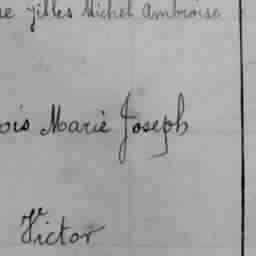 Gilles Michel Ambroise
Marie Joseph
Victor